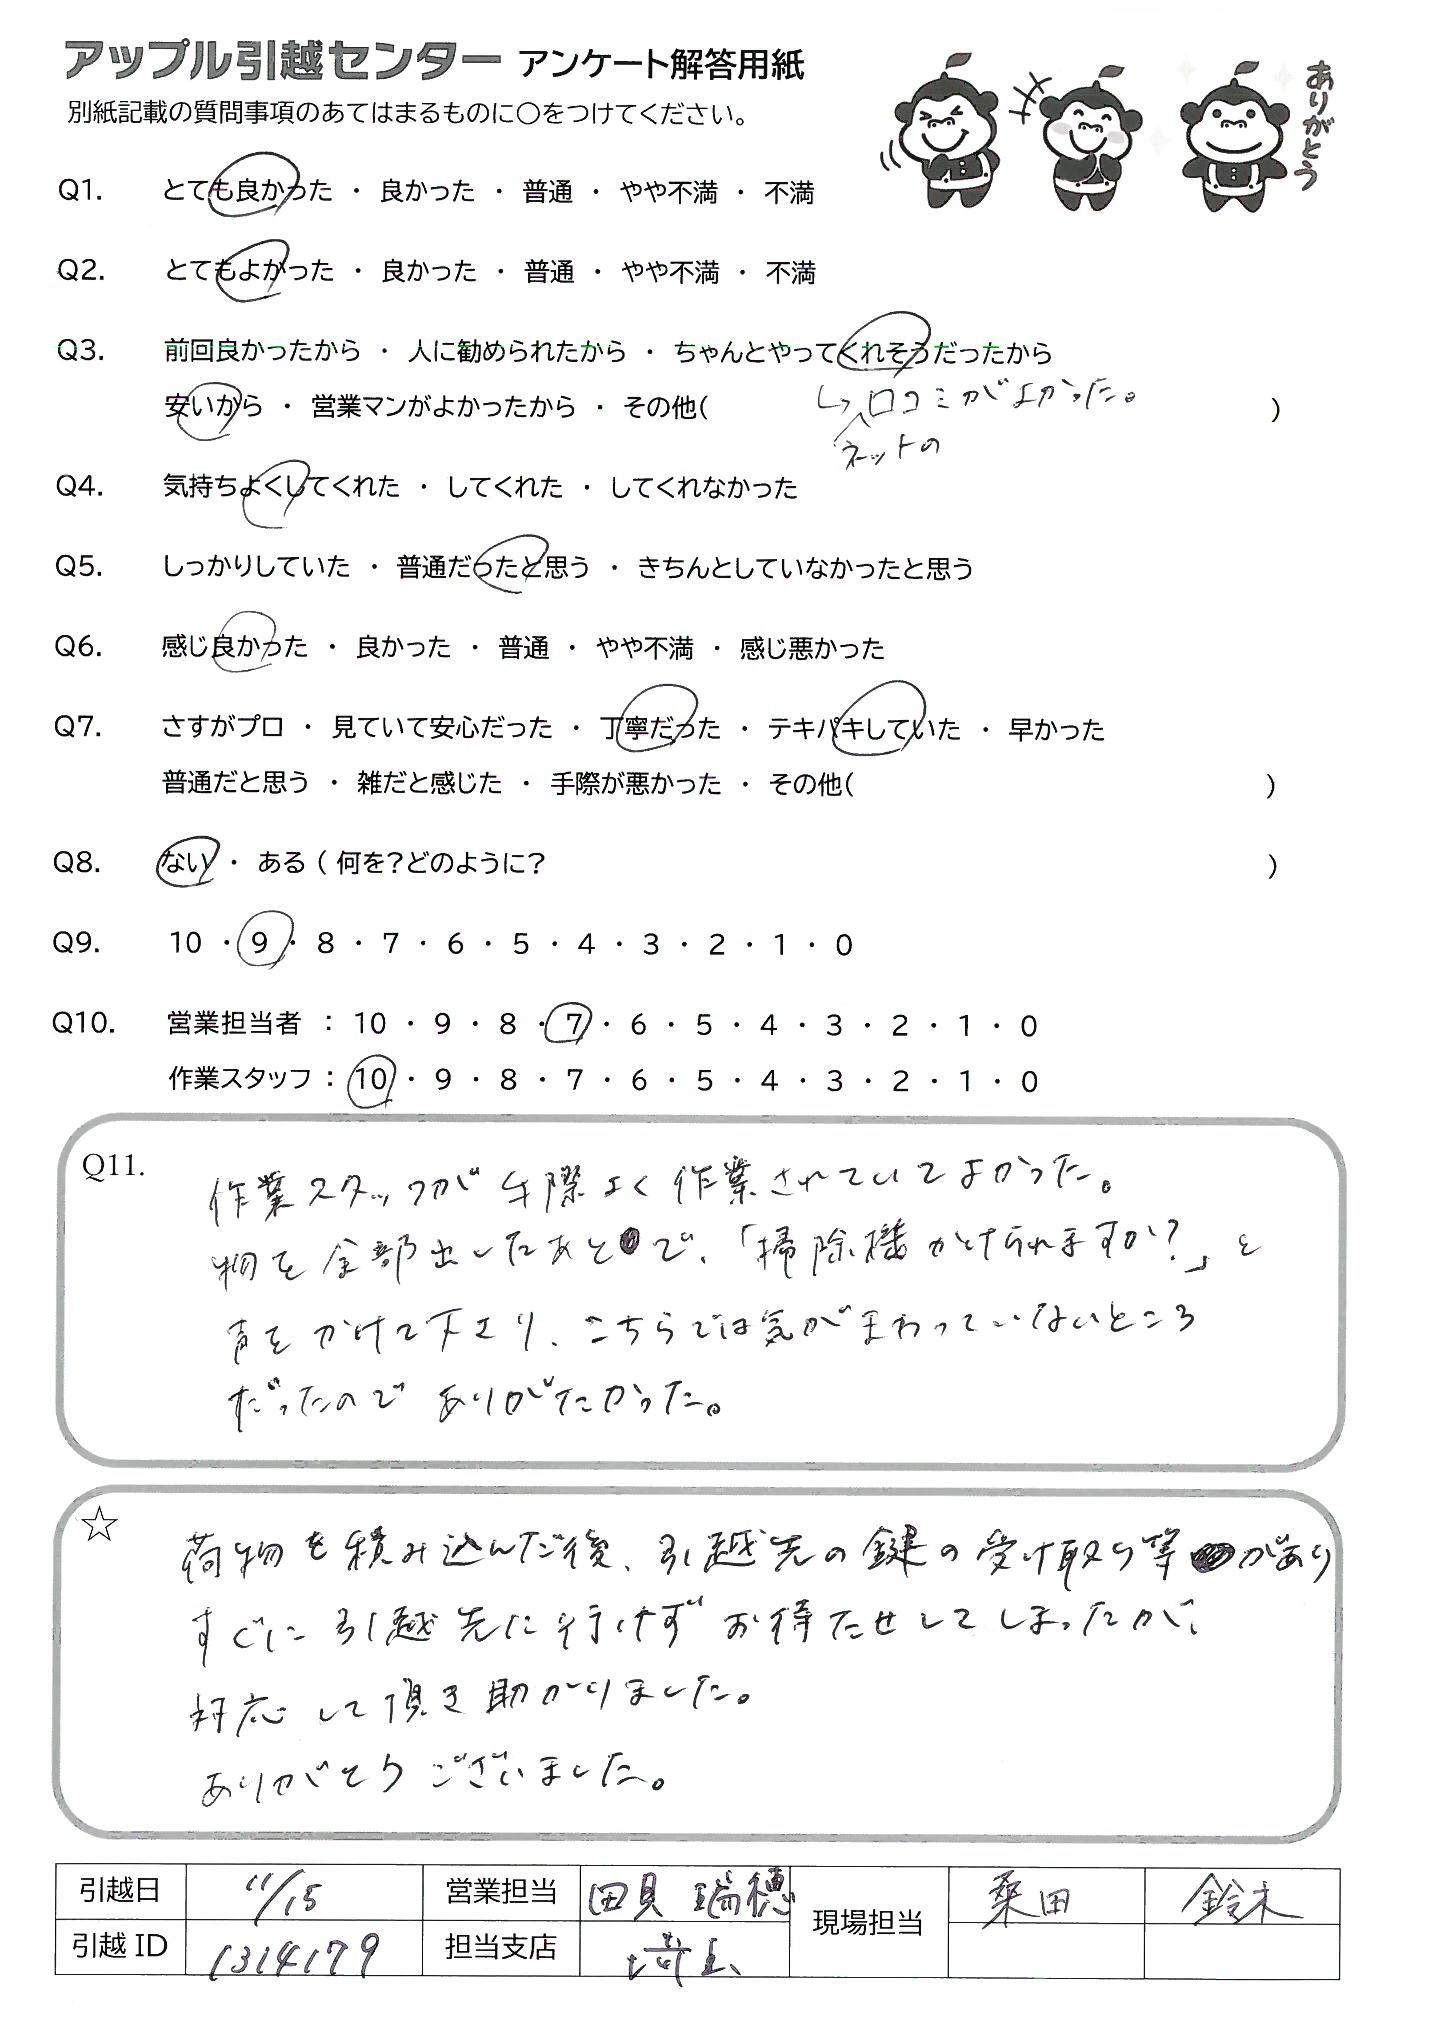 アップル引越センター アンケート解答用紙
別紙記載の質問事項のあてはまるものに○をつけてください。
ありがとう
Q1. とても良かった ・ 良かった ・ 普通 ・ やや不満 ・ 不満
Q2. とてもよかった ・ 良かった ・ 普通 ・ やや不満 ・ 不満
Q3. 前回良かったから ・ 人に勧められたから ・ ちゃんとやってくれそうだったから
安いから ・ 営業マンがよかったから ・ その他( )
↳口コミがよかった。
ネットの
Q4. 気持ちよくしてくれた ・ してくれた ・ してくれなかった
Q5. しっかりしていた ・ 普通だったと思う ・ きちんとしていなかったと思う
Q6. 感じ良かった ・ 良かった ・ 普通 ・ やや不満 ・ 感じ悪かった
Q7. さすがプロ ・ 見ていて安心だった ・ 丁寧だった ・ テキパキしていた ・ 早かった
普通だと思う ・ 雑だと感じた ・ 手際が悪かった ・ その他( )
Q8. ない ・ ある ( 何を?どのように? )
Q9. 10 ・ 9 ・ 8 ・ 7 ・ 6 ・ 5 ・ 4 ・ 3 ・ 2 ・ 1 ・ 0
Q10. 営業担当者 : 10 ・ 9 ・ 8 ・ 7 ・ 6 ・ 5 ・ 4 ・ 3 ・ 2 ・ 1 ・ 0
作業スタッフ : 10 ・ 9 ・ 8 ・ 7 ・ 6 ・ 5 ・ 4 ・ 3 ・ 2 ・ 1 ・ 0
Q11. 作業スタッフが手際よく作業されていてよかった。
物を全部出したあとで、「掃除機かけられますか?」と
声をかけて下さり、こちらでは気がまわっていないところ
だったのでありがたかった。
☆ 荷物を積み込んだ後、引越先の鍵の受け取り等があり
すぐに引越先に行けずお待たせしてしまったが、
対応して頂き助かりました。
ありがとうございました。
引越日 11/15 営業担当 田貝 瑞穂 現場担当 桑田 鈴木
引越 ID 1314179 担当支店 埼玉